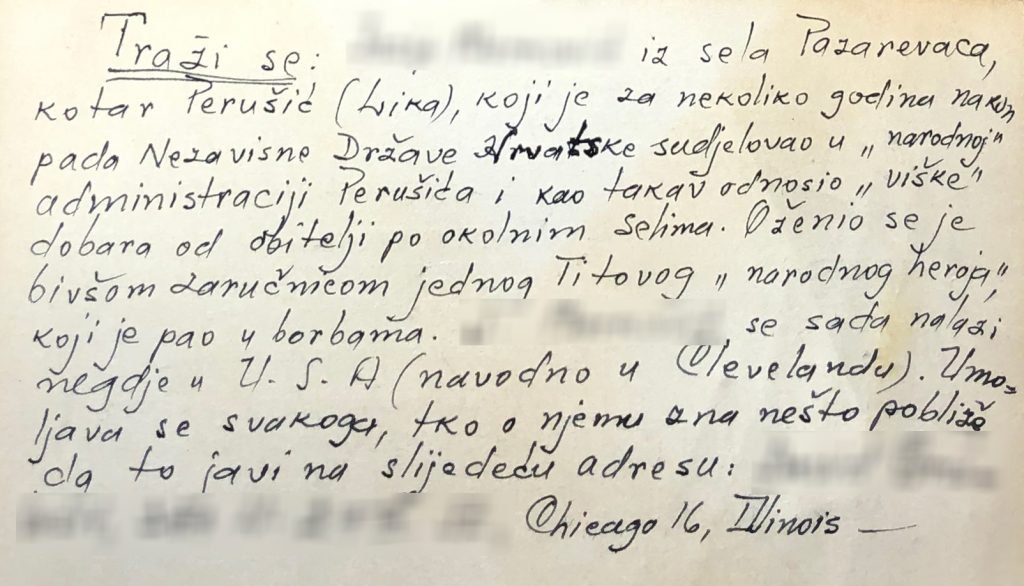 Traži se: iz sela Pazarevaca,
kotar Perušić (Lika), koji je za nekoliko godina nakon
pada Nezavisne Države Hrvatske sudjelovao u „narodnoj"
administraciji Perušića i kao takav odnosio „viške"
dobara od obitelji po okolnim selima. Oženio se je
bivšom zaručnicom jednog Titovog „narodnog heroja",
koji je pao u borbama. se sada nalazi
negdje u U. S. A (navodno u Clevelandu). Umo-
ljava se svakoga, tko o njemu zna nešto pobliže
da to javi na slijedeću adresu:
Chicago 16, Illinois —